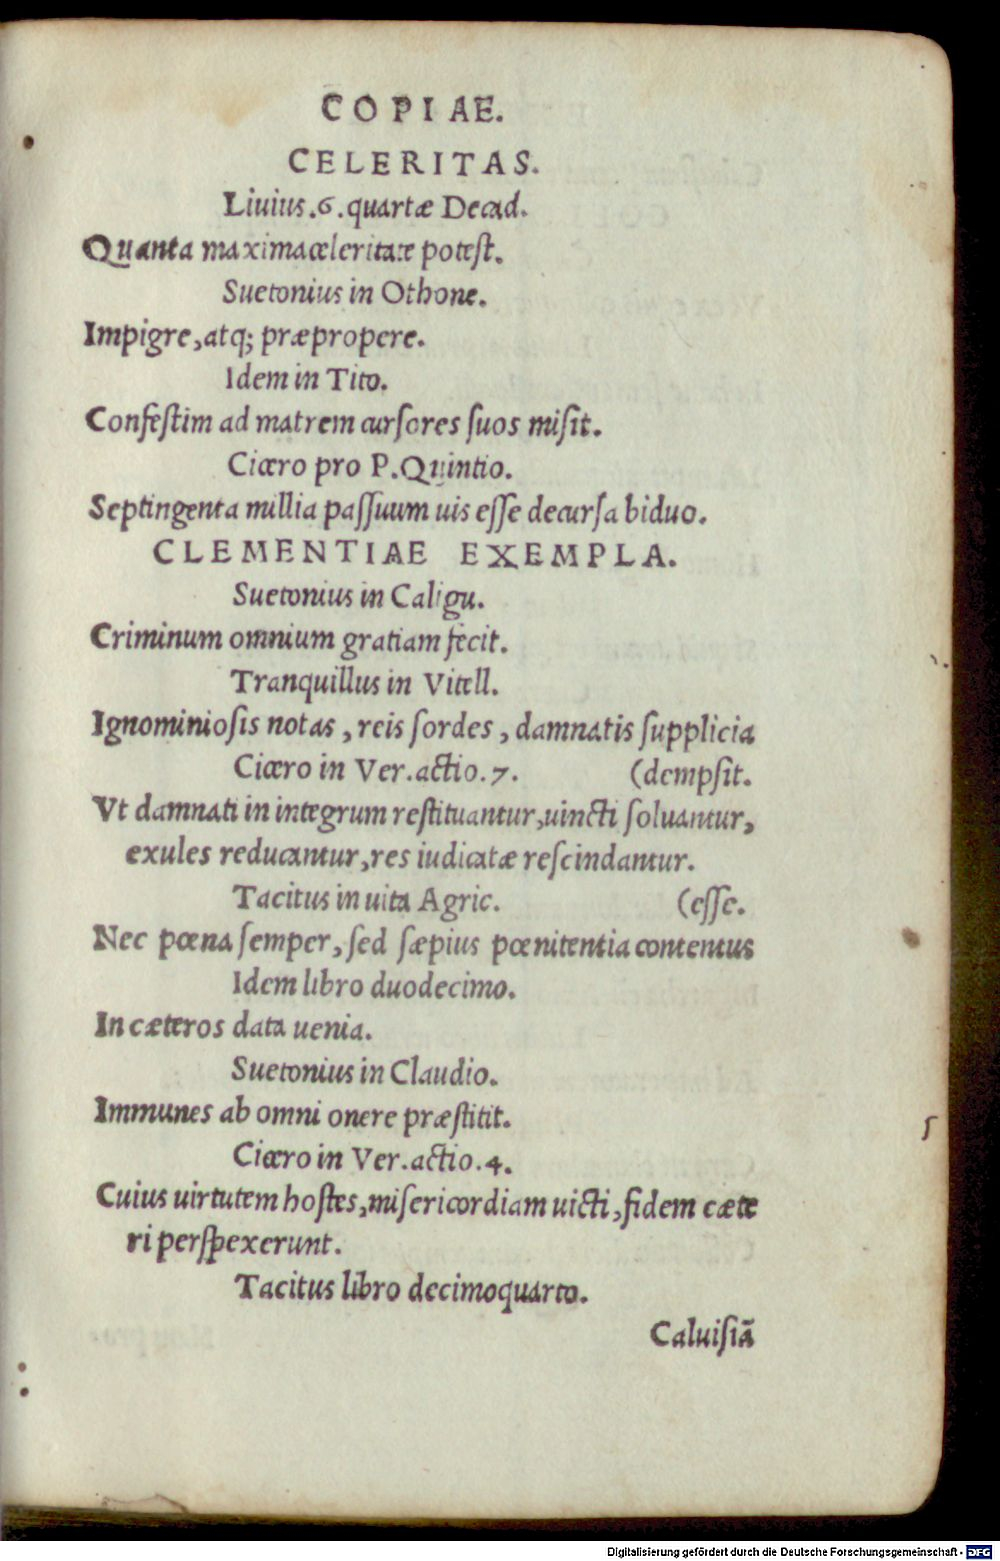 COPIAE.
CELERITAS.
Liuius.6.quartæ Decad.
Quanta maxima celeritate potest.
Suetonius in Othone.
Impigre, atq; præpropere.
Idem in Tito.
Confestim ad matrem cursores suos misit.
Cicero pro P.Quintio.
Septingenta millia passuum uis esse decursa biduo.
CLEMENTIAE EXEMPLA.
Suetonius in Caligu.
Criminum omnium gratiam fecit.
Tranquillus in Vitell.
Ignominiosis notas, reis sordes, damnatis supplicia
Cicero in Ver.actio.7. (dempsit.
Vt damnati in integrum restituantur, uincti soluantur,
exules reducantur, res iudicatæ rescindantur.
Tacitus in uita Agric. (esse.
Nec pœna semper, sed sæpius pœnitentia contentus
Idem libro duodecimo.
In cæteros data uenia.
Suetonius in Claudio.
Immunes ab omni onere præstitit.
Cicero in Ver.actio.4.
Cuius uirtutem hostes, misericordiam uicti, fidem cæte
ri perspexerunt.
Tacitus libro decimoquarto.
Caluisiā
Digitalisierung gefördert durch die Deutsche Forschungsgemeinschaft - DFG